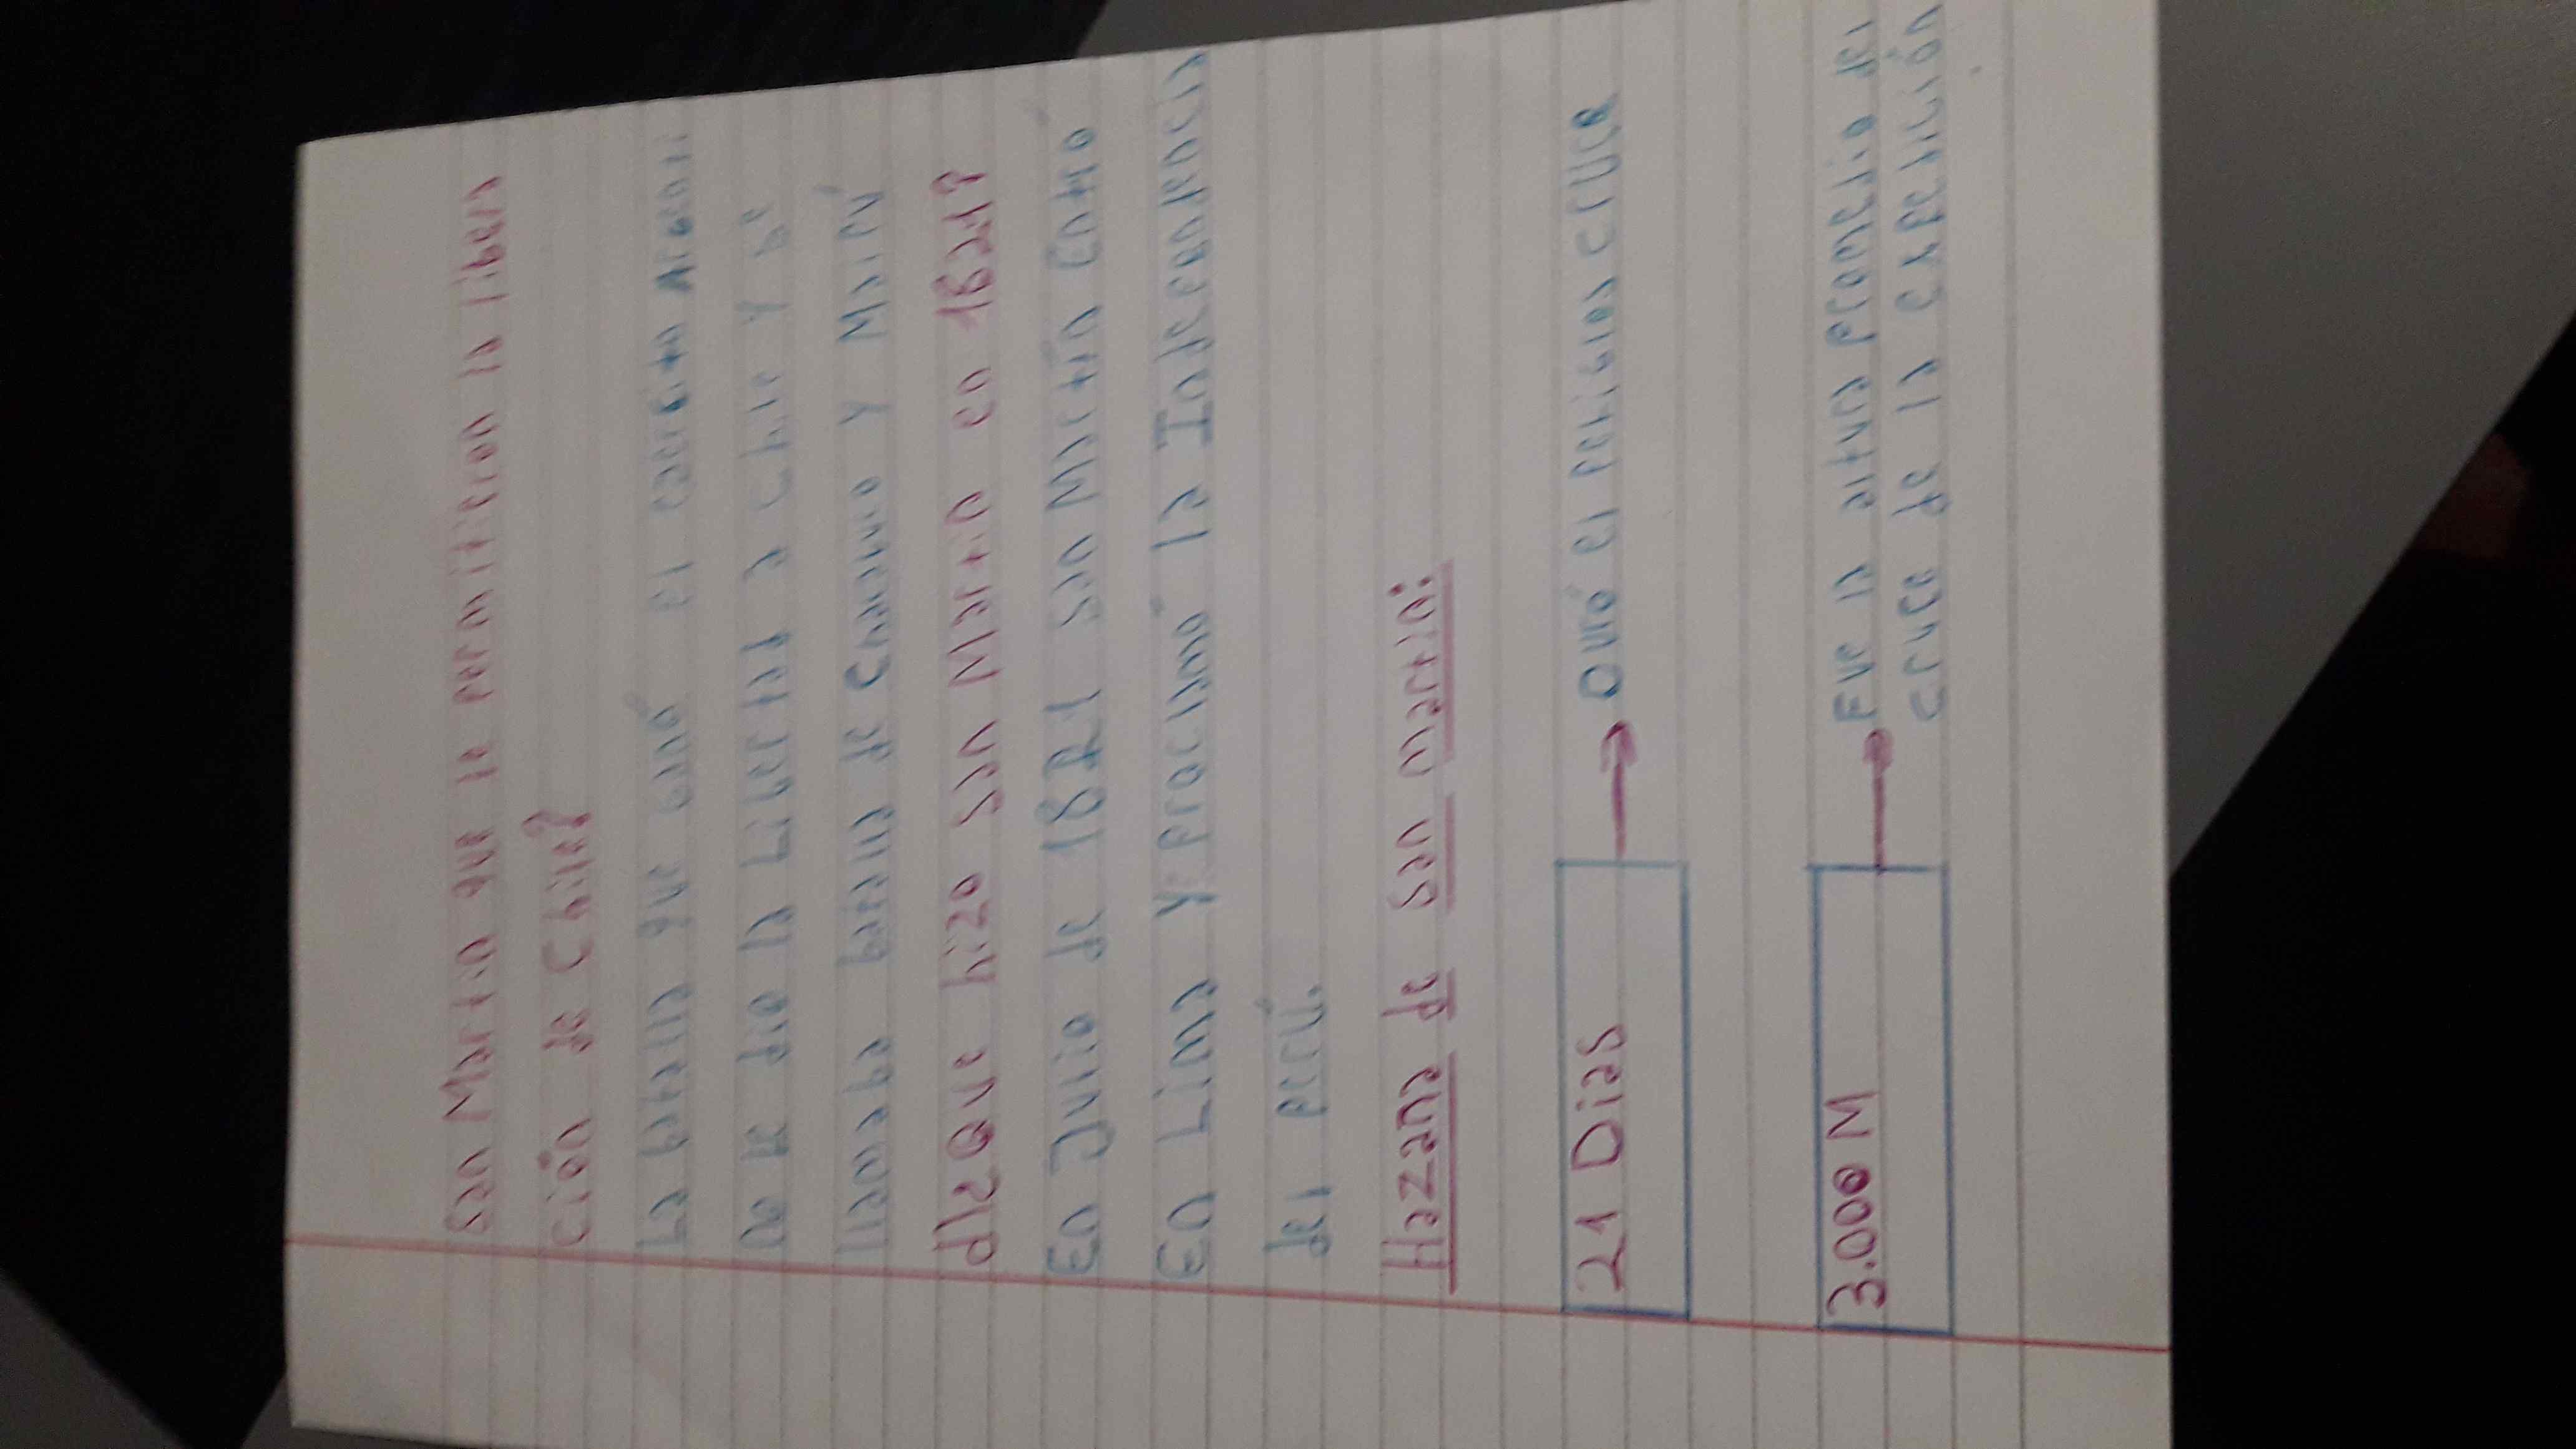 San Martín que le permitieron la libera
ción de Chile?
La batalla que ganó el ejército Argenti
no le dio la Libertad a Chile y se
llamaba batalla de Chacabuco y Maipú
d¿Que hizo san Martin en 1821?
En Julio de 1821 san Martín Entró
En Lima y proclamó la Independencia
del perú.
Hazana de san martin:
21 Dias → Duró el peligros cruce
3.000 M → Fue la altura promedio del
cruce de la expedición